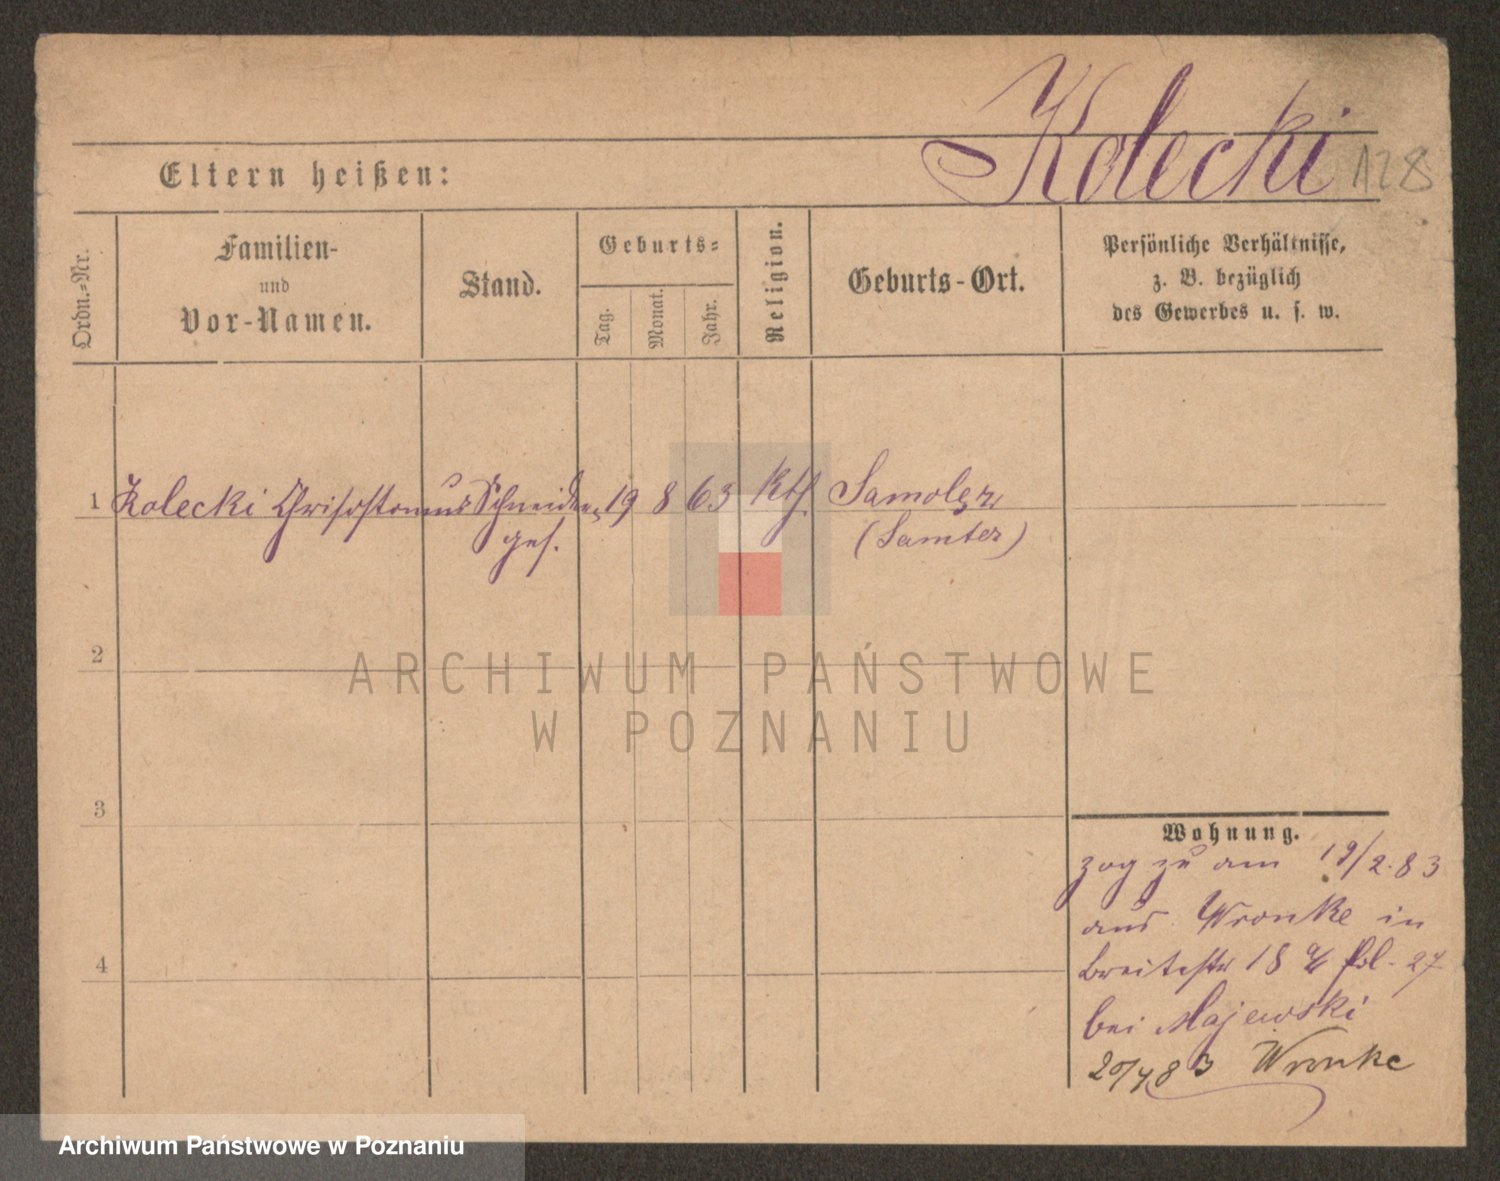 Kolecki 128
Eltern heißen:
Ordn.=Nr.
Familien-
und
Vor-Namen.
Stand.
Geburts=
Tag.
Monat.
Jahr.
Religion.
Geburts-Ort.
Persönliche Verhältnisse,
z. B. bezüglich
des Gewerbes u. s. w.
1 Kolecki Chrisostomus Schneider 19 8 63 kth. Samolez
ges. (Samter)
2
3
4
ARCHIWUM PAŃSTWOWE
W POZNANIU
Wohnung.
zog zu am 19/2.83
aus Wronke in
Breitestr 18 Pol. 27
bei Majewski
20/4 83 Wronke
Archiwum Państwowe w Poznaniu